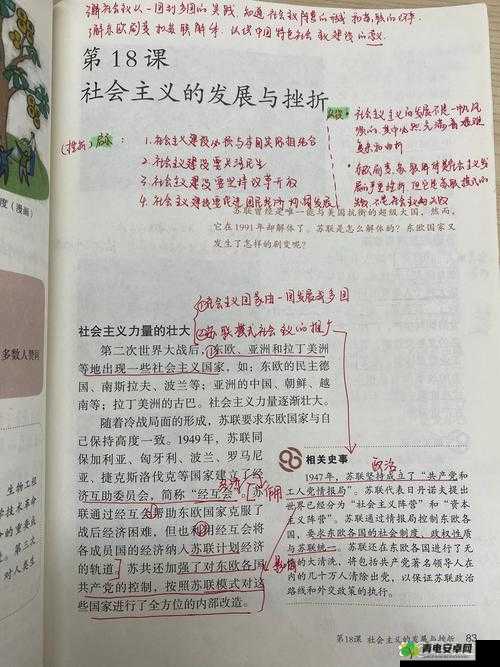 了解社会主义从一国到多国的实践，知道社会主义阵营的
了解东欧剧变和苏联解体，认识中国特色社会主义建设的意义
第18课
社会主义的发展与挫折
（挫折）启示：
1.社会主义建设必须与本国实际相结合
2.社会主义建设要关注民生
3.社会主义建设要坚持改革开放
4.社会主义建设要促进国民经济协调发展
社会主义的发展不是一帆风顺的，其中必然充满着艰难
复杂和曲折
东欧剧变、苏联解体是社会主义发
展的严重挫折，但它是苏联模式的
失败，不是社会主义的失败
苏联曾经是唯一能与美国抗衡的超级大国，然而，
它在1991年却解体了。苏联是怎么解体的？东欧国家又
发生了怎样的剧变呢？
度（漫画）
多数人赞同
生物工程
学技术革命
的重要成
。第二次
对人类生
①社会主义国家由一国发展为多国
②苏联模式社会主义的推广
社会主义力量的壮大
第二次世界大战后，①东欧、亚洲和拉丁美洲
等地出现一些社会主义国家，如：东欧的民主德
国、南斯拉夫、波兰等；亚洲的中国、朝鲜、越
南等；拉丁美洲的古巴。社会主义力量逐渐壮大。
随着冷战局面的形成，苏联要求东欧国家与自
己保持高度一致。1949年，苏联同
保加利亚、匈牙利、波兰、罗马尼
亚、捷克斯洛伐克等国家建立了经
济互助委员会，简称“经互会”。苏
联通过经互会帮助东欧国家克服了
战后经济困难，但也利用经互会将
各成员国的经济纳入苏联计划经济
的轨道。苏共还加强了对东欧各国
共产党的控制，按照苏联模式对这
些国家进行了全方位的内部改造。
经济
作用
影响
政治
相关史事
1947年，苏联坚持成立了“共产党和
工人党情报局”。苏联代表日丹诺夫提出
世界已经分为“社会主义阵营”和“资本
主义阵营”。苏联通过情报局控制东欧各
国，要求东欧各国的社会制度、政权性质
与苏联统一。苏联还在东欧各国进行了无
情的大清洗，将包括共产党著名领导人在
内的几十万人清除出党，以保证苏联政治
路线和外交政策的执行。
第18课 社会主义的发展与挫折 83
青电安卓网